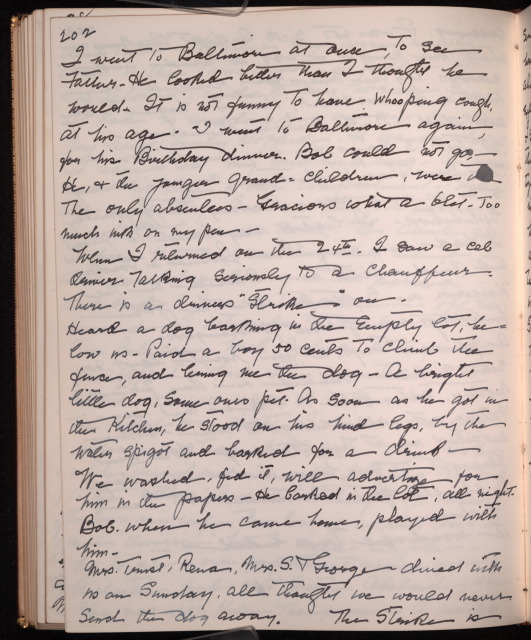 202
I went to Baltimore at once, to see
Father. He looked better than I thought he
would. It is not funny to have whooping cough,
at his age. I went to Baltimore again,
for his Birthday dinner. Bob could not go.
He, & the younger grand-children, were
the only absentees - Gracious what a blot. Too
much ink on my pen -
When I returned on the 24th. I saw a cab
driver talking seriously to a chauffeur.
There is a drivers "Strike" on.
Heard a dog barking in the Empty lot, be=
low us. Paid a boy 50 cents to climb the
fence, and bring me the dog - A bright
little dog, some ones pet. As soon as he got in
the Kitchen, he stood on his hind legs, by the
water spigot and barked for a drink -
We washed, fed it, will advertise for
him in the papers - He barked in the lot, all night.
Bob. when he came home, played with
him -
Mrs. Rena, Mrs. S. & George - dined with
us on Sunday, all thought we would never
send the dog away. The Strike is